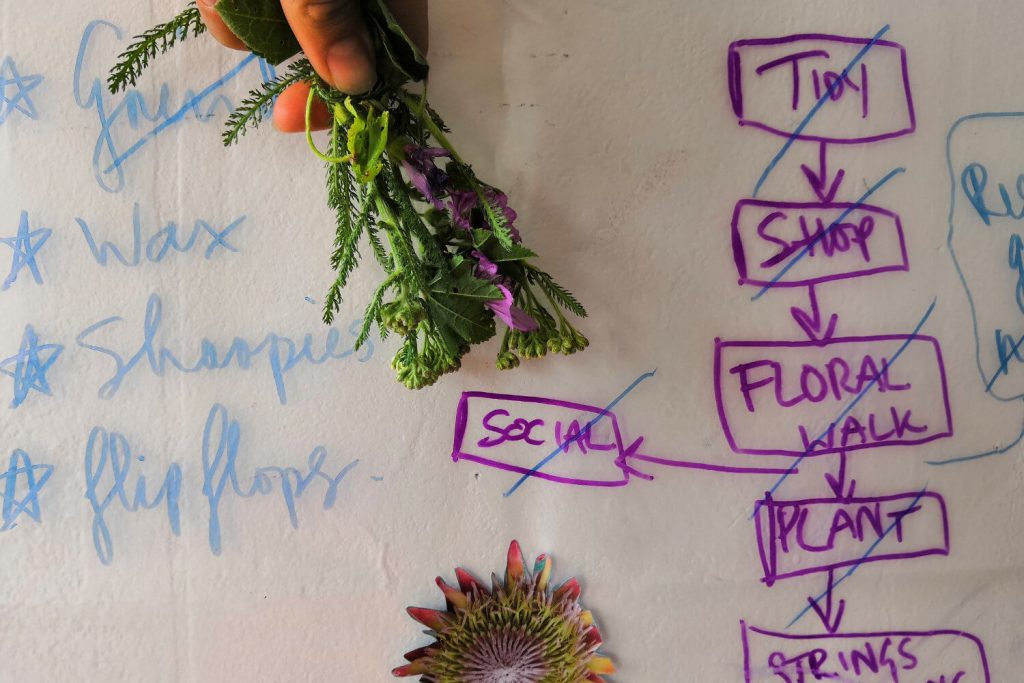 Wax
Sharpies
flip flops.
TIDY
SHOP
FLORAL
WALK
SOCIAL
PLANT
STRINGS